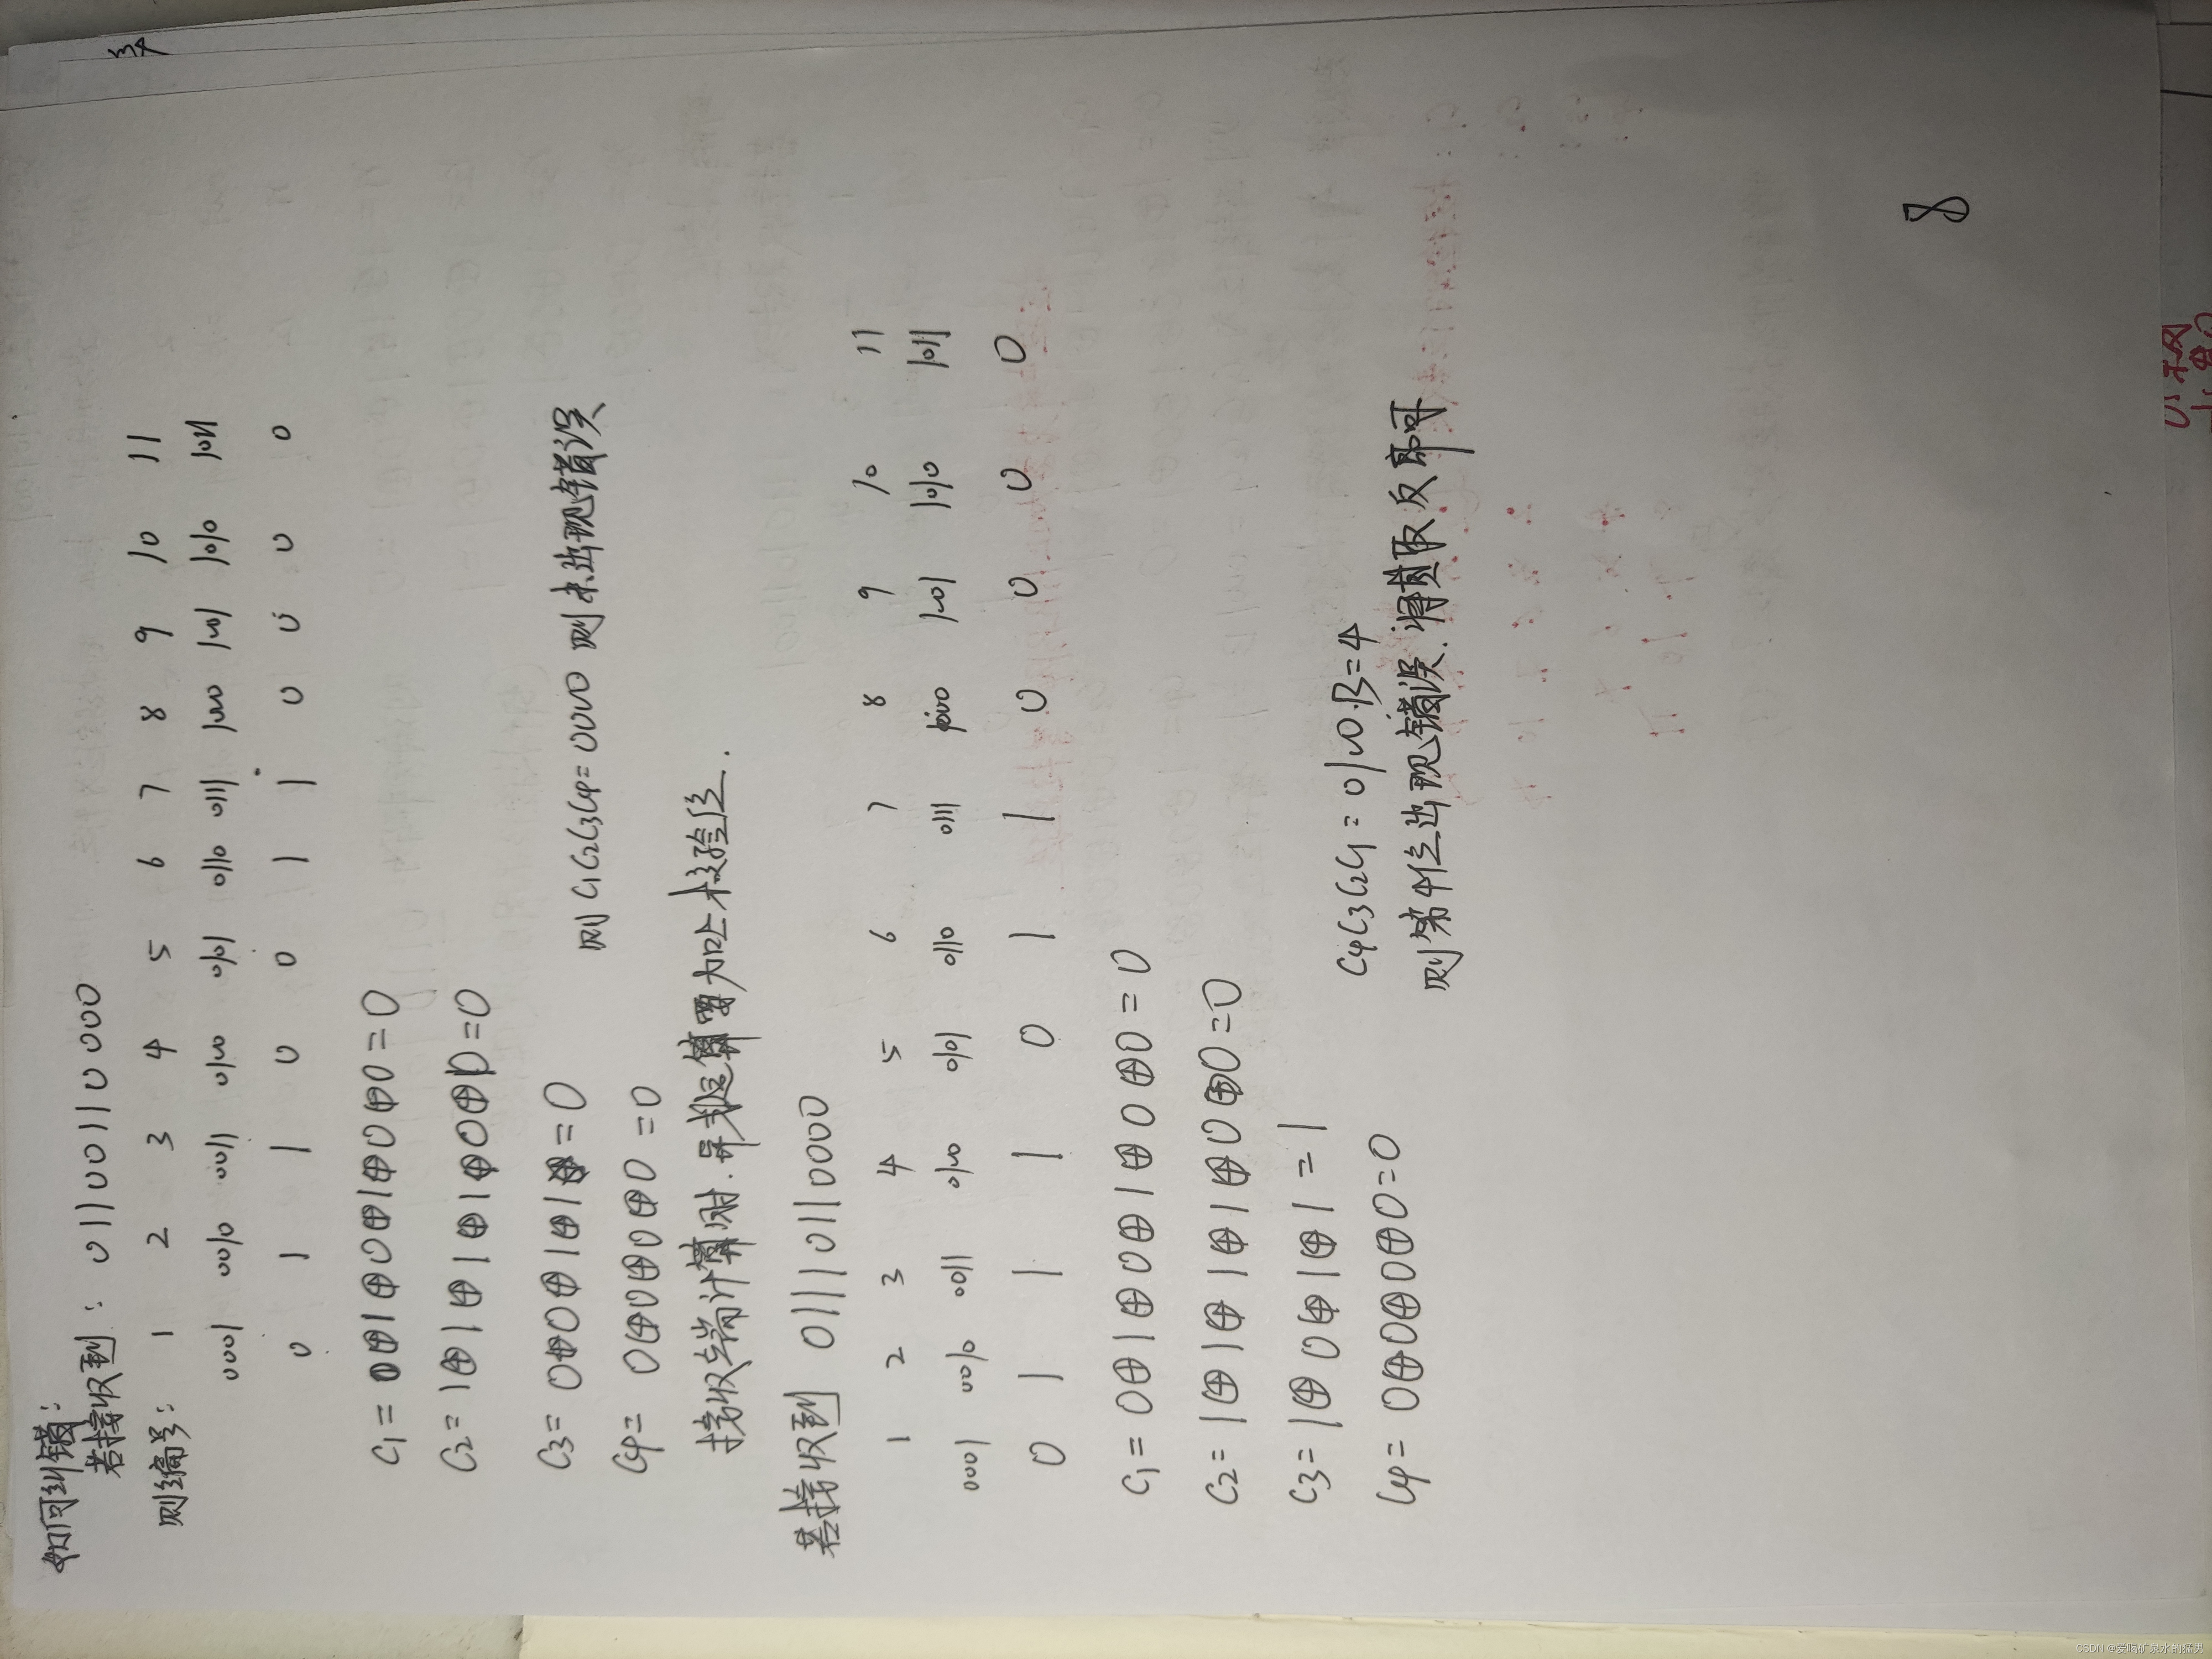 如何纠错：
若接收到：01100110000
则编号： 1 2 3 4 5 6 7 8 9 10 11
0001 0010 0011 0100 0101 0110 0111 1000 1001 1010 1011
0 1 1 0 0 1 1 0 0 0 0
C1 = 0⊕1⊕0⊕1⊕0⊕0=0
C2 = 1⊕1⊕1⊕1⊕0⊕0=0
C3 = 0⊕0⊕1⊕1=0
C4 = 0⊕0⊕0⊕0=0
则 C1C2C3C4=0000 则未出现错误
接收端计算时.异或运算要加上校验位.
若接收到 01110110000
1 2 3 4 5 6 7 8 9 10 11
0001 0010 0011 0100 0101 0110 0111 1000 1001 1010 1011
0 1 1 1 0 1 1 0 0 0 0
C1 = 0⊕1⊕0⊕1⊕0⊕0=0
C2 = 1⊕1⊕1⊕1⊕0⊕0=0
C3 = 1⊕0⊕1⊕1=1
C4 = 0⊕0⊕0⊕0=0
C4C3C2C1 = 0100.B=4
则第4位出现错误.将其取反即可
8
CSDN @爱喝矿泉水的猛男